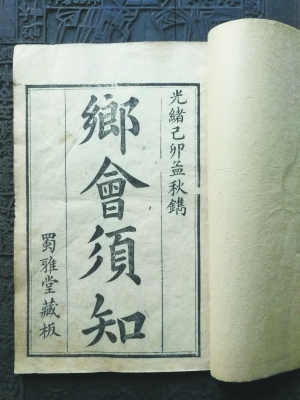 光緒己卯孟秋鐫
鄉會須知
蜀雅堂藏板